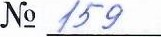 № 159